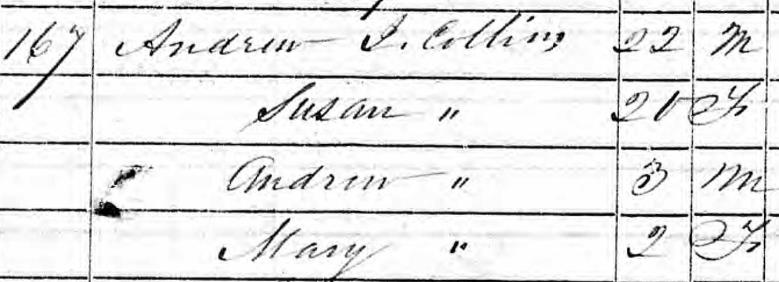 167 Andrew J. Collins 22 M
Susan " 20 F
Andrew " 3 M
Mary " 2 F